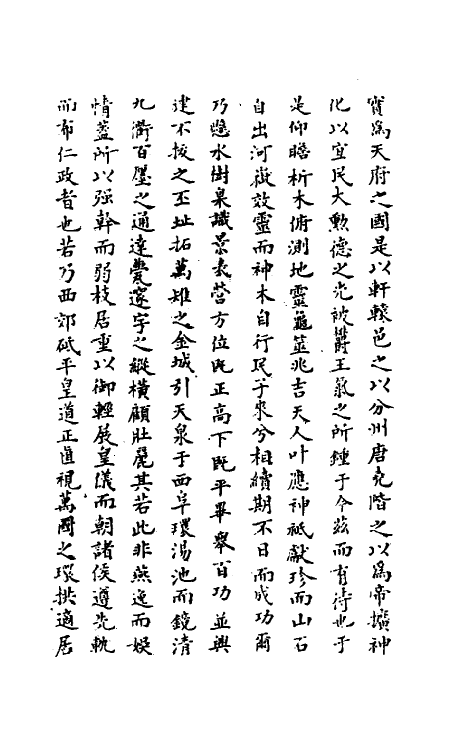 實為天府之國是以軒轅邑之以分州唐堯階之以為帝擴神
化以宜民大勲德之光被欝王氣之所鍾于今茲而有待也于
是仰瞻析木俯測地靈龜筮兆吉天人叶應神祗獻珍而山石
自出河嶽效靈而神木自行民子來兮相續期不日而成功爾
乃懸水樹臬議景表營方位既正高下既平畢舉百功並興
建不拔之丕址拓萬雉之金城引天泉于西阜環湯池而鏡清
九衢百廛之通達甍邃宇之縱橫顧壯麗其若此非燕逸而娛
情葢所以强幹而弱枝居重以御輕展皇儀而朝諸侯遵先軌
而布仁政者也若乃西郊砥平皇道正直視萬國之環拱適居